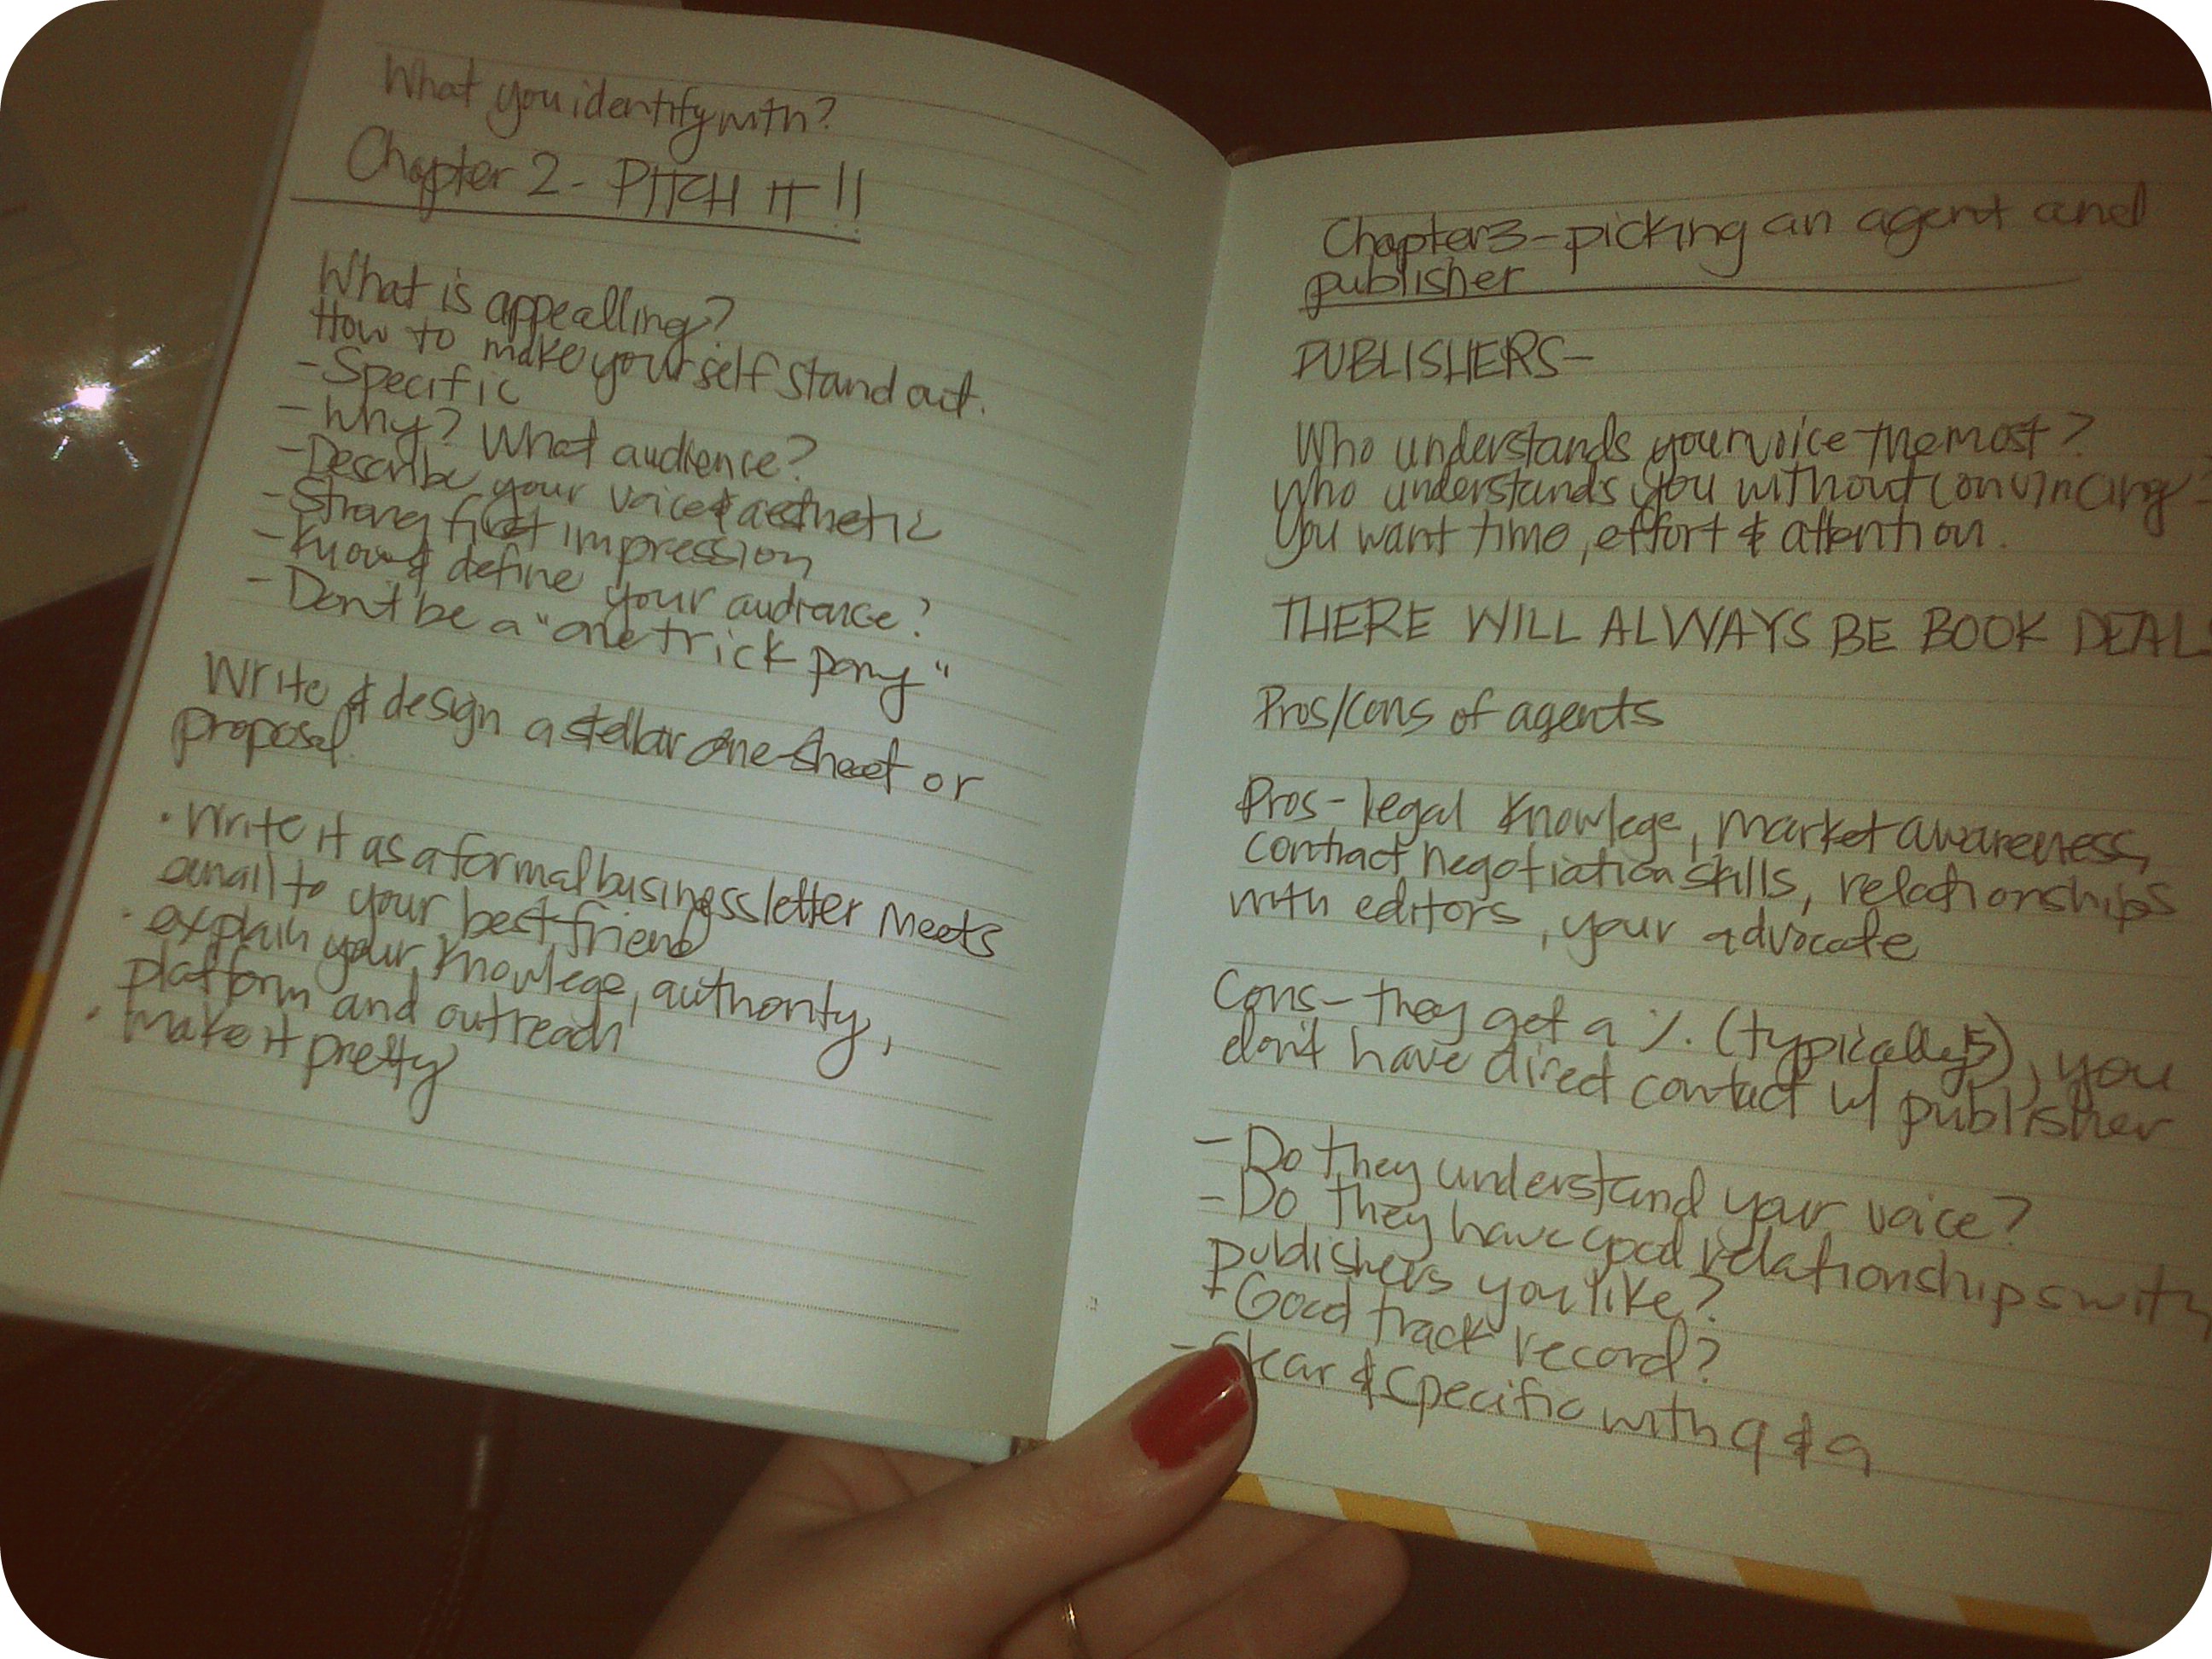 What you identify with?
Chapter 2 - PITCH IT!!
What is appealling?
How to make yourself stand out.
- Specific
- Why? What audience?
- Describe your voice & aesthetic
- Strong first impression
- Know & define your audience?
- Don't be a "one trick pony"
Write & design a stellar one-sheet or
proposal.
· Write it as a formal business letter meets
email to your best friend
· explain your knowlege, authority,
platform and outreach
· make it pretty
Chapter 3 - picking an agent and
publisher
PUBLISHERS -
Who understands your voice the most?
Who understands you without convincing
You want time, effort & attention.
THERE WILL ALWAYS BE BOOK DEALS
Pros/Cons of agents
Pros - legal knowlege, market awareness,
contract negotiation skills, relationships
with editors, your advocate
Cons - they get a %. (typically 15), you
don't have direct contact w/ publisher
- Do they understand your voice?
- Do they have good relationships with
publishers you like?
- Good track record?
- Clear & specific with q & a